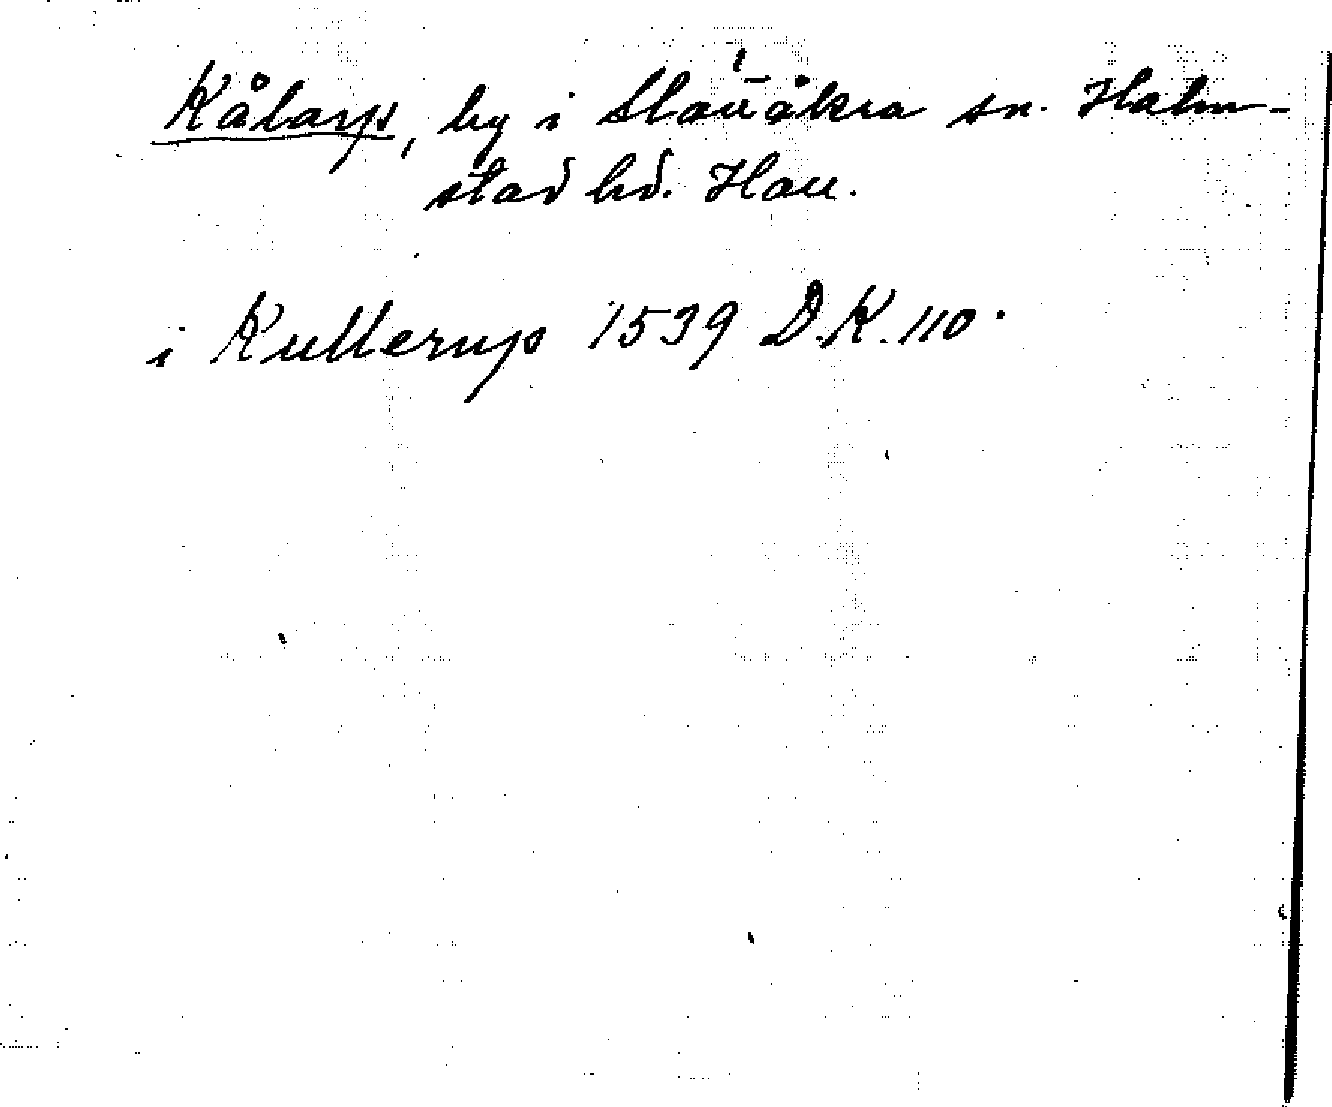 Kålarp, by i Slättåkra sn. Halm-
stad hd. Hall.
i Kullerup 1539 D.K. 110.